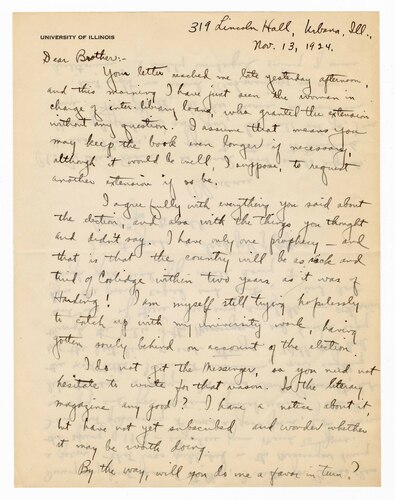 UNIVERSITY OF ILLINOIS
319 Lincoln Hall, Urbana, Ill.,
Nov. 13, 1924.
Dear Brother:-
Your letter reached me late yesterday afternoon,
and this morning I have just seen the woman in
charge of inter-library loans, who granted the extension
without any question. I assume that means you
may keep the book even longer if necessary,
although it would be well, I suppose, to request
another extension if so be.
I agree fully with everything you said about
the election, and also with the things you thought
and didn't say. I have only one prophecy — and
that is that the country will be as sick and
tired of Coolidge within two years as it was of
Harding! I am myself still trying hopelessly
to catch up with my university work, having
gotten sorely behind on account of the election.
I do not get the Messenger, so you need not
hesitate to write for that reason. Is the literary
magazine any good? I have a notice about it,
but have not yet subscribed and wonder whether
it may be worth doing.
By the way, will you do me a favor in turn?